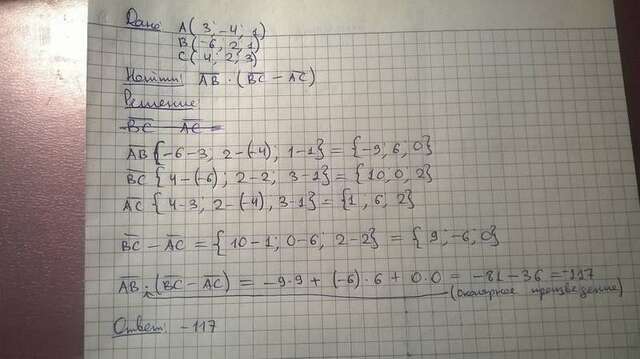 Дано: A(3; -4; 1)
B(-6; 2; 1)
C(4; 2; 3)
Найти: AB · (BC - AC)
Решение
BC AC =
AB {-6-3; 2-(-4), 1-1} = {-9; 6; 0}
BC {4-(-6); 2-2; 3-1} = {10, 0, 2}
AC {4-3; 2-(-4), 3-1} = {1, 6, 2}
BC - AC = {10-1; 0-6; 2-2} = {9; -6; 0}
AB · (BC - AC) = -9·9 + (-6)·6 + 0·0 = -81-36 = -117
(скалярное произведение)
Ответ: -117